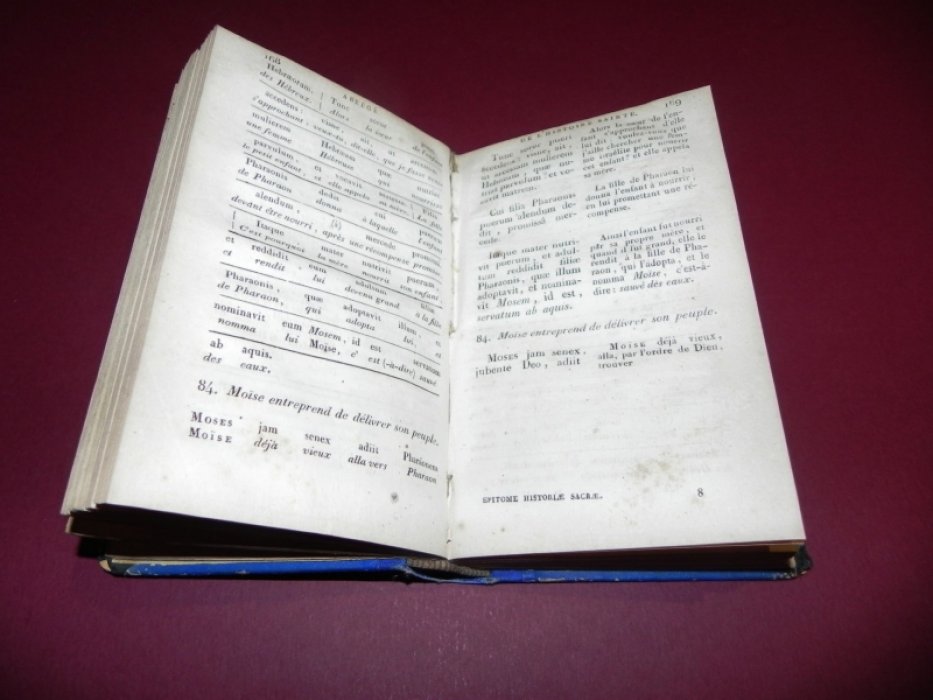 168
ABRÉGÉ
Hebræorum. Tunc soror pueri
des Hébreux. Alors la sœur de l'enfant
accedens: visne, ait, ut
s'approchant: veux-tu, dit-elle, que je fasse venir
mulierem Hebræam quæ nutriat
une femme Hébreuse qui nourrisse
parvulum, et vocavit matrem. Filia
le petit enfant, et elle appela sa mère. La fille
Pharaonis dedit cui puerum
de Pharaon donna à laquelle l'enfant
alendum, mercede promissa
devant être nourri, après une récompense promise
Itaque mater nutrivit puerum,
C'est pourquoi la mère nourrit son enfant,
et reddidit eum adultum filiæ
et rendit lui devenu grand à la fille
Pharaonis, quæ adoptavit illum, et
de Pharaon, qui adopta lui, et
nominavit eum Mosem, id est servatum
nomma lui Moïse, c' est (-à-dire) sauvé
ab aquis.
des eaux.
84. Moïse entreprend de délivrer son peuple.
MOSES jam senex adiit Pharaonem
MOÏSE déjà vieux alla vers Pharaon
DE L'HISTOIRE SAINTE.
169
Tunc soror pueri
accedens: visne, ait,
ut accersam mulierem
Hebræam, quæ nutriat
parvulum? et vocavit
matrem.
Alors la sœur de l'enfant
s'approchant d'elle
lui dit: voulez-vous que
j'aille chercher une femme
israélite pour nourrir
cet enfant? et elle appela
sa mère.
Cui filia Pharaonis
puerum alendum dedit,
promissâ mercede.
La fille de Pharaon lui
donna l'enfant à nourrir
en lui promettant une récompense.
Itaque mater nutrivit
puerum, et adultum
reddidit filiæ
Pharaonis, quæ illum
adoptavit, et nominavit
Mosem, id est,
servatum ab aquis.
Ainsi l'enfant fut nourri
par sa propre mère, et
quand il fut grand, elle le
rendit à la fille de Pharaon,
qui l'adopta, et le
nomma Moïse, c'est-à-dire:
sauvé des eaux.
84. Moïse entreprend de délivrer son peuple.
MOSES jam senex,
jubente Deo, adiit
MOÏSE déjà vieux,
alla, par l'ordre de Dieu,
trouver
EPITOME HISTORIÆ SACRÆ. 8